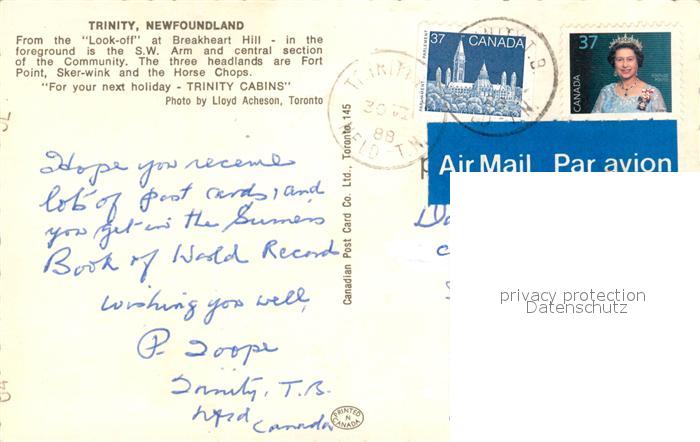 TRINITY, NEWFOUNDLAND
From the "Look-off" at Breakheart Hill - in the
foreground is the S.W. Arm and central section
of the Community. The three headlands are Fort
Point, Sker-wink and the Horse Chops.
"For your next holiday - TRINITY CABINS"
Photo by Lloyd Acheson, Toronto
Hope you receive
lots of post cards, and
you get in the Guiness
Book of World Records
wishing you well,
P. Toope
Trinity, T.B.
Nfld
Canada
Canadian Post Card Co. Ltd., Toronto 145
PRINTED
IN
CANADA
37 CANADA
PARLIAMENT
PARLEMENT
37
CANADA
TRINITY
30
88
NFLD
Air Mail Par avion
privacy protection
Datenschutz